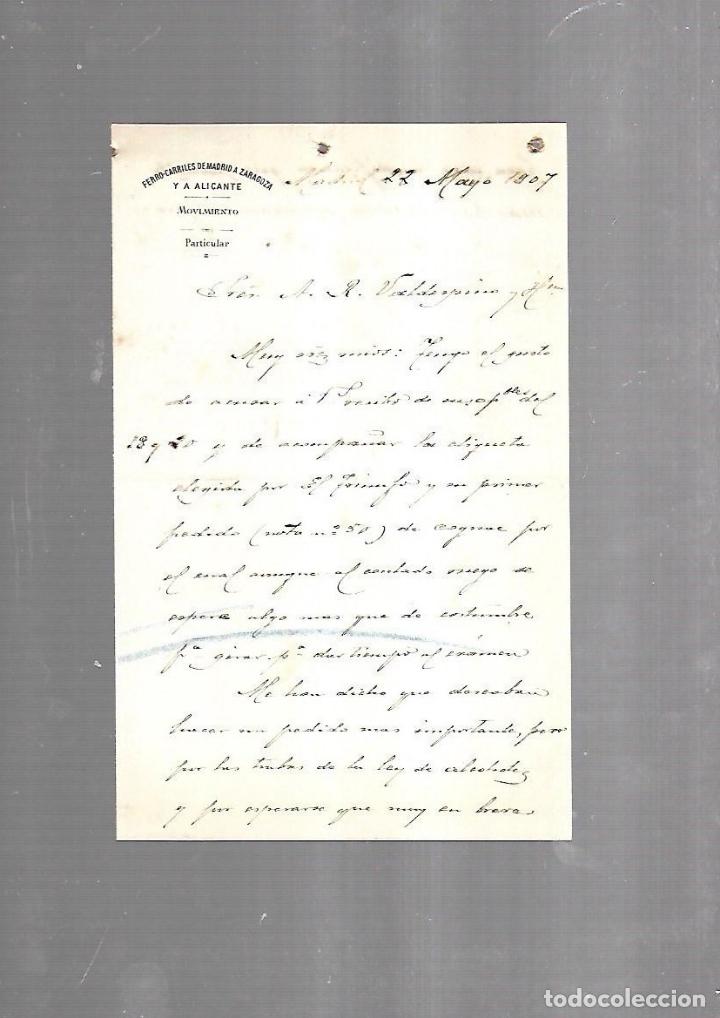 FERRO-CARRILES DE MADRID A ZARAGOZA
Y A ALICANTE
MOVIMIENTO
Particular
Madrid 22 Mayo 1907
Sres. A. R. Valdespino y Hno
Muy Sres mios: Tengo el gusto
de acusar á Vs recibo de sus del
18 y 20 y de acompañar la etiqueta
elegida por El Triunfo y su primer
pedido (nota nº 50) de cognac por
el cual aunque al contado ruego se
espere algo mas que de costumbre
pª girar, pª dar tiempo al exámen
Me han dicho que deseaban
hacer un pedido mas importante, pero
por las trabas de la ley de alcoholes
y por esperarse que muy en breve
todocoleccion
todocoleccion.net